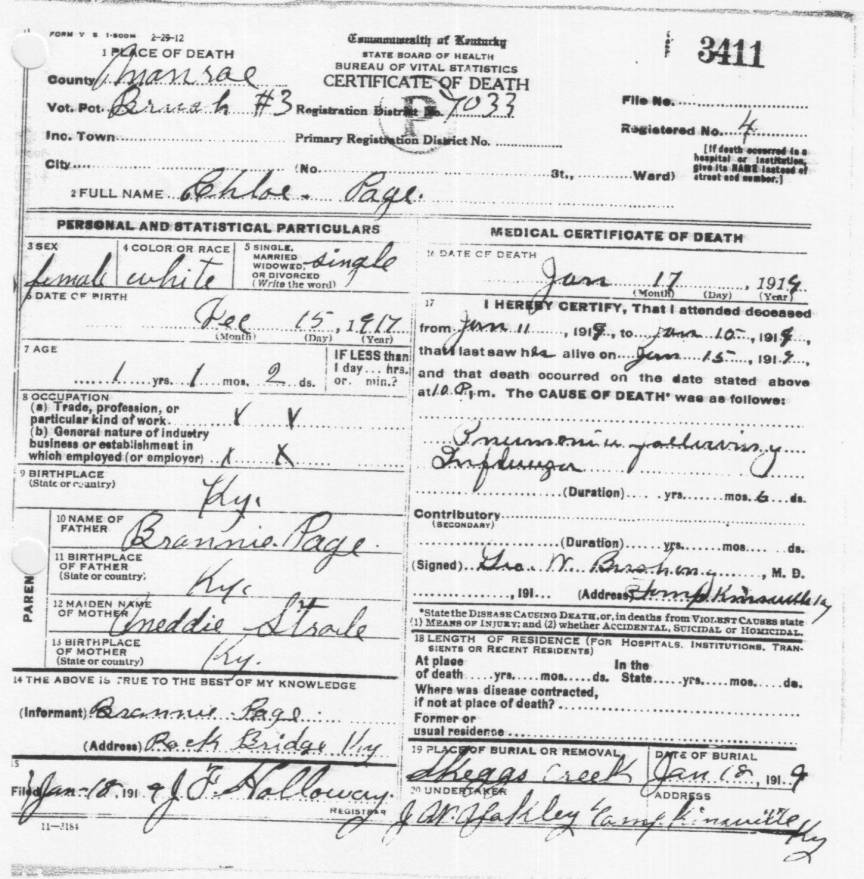 FORM V S 1-500M 2-29-12
Commonwealth of Kentucky
STATE BOARD OF HEALTH
BUREAU OF VITAL STATISTICS
CERTIFICATE OF DEATH
3411
1 PLACE OF DEATH
County Monroe
Vot. Pct. Brush #3 Registration District No. 7033
File No.
Inc. Town Primary Registration District No.
Registered No. 4
City (No. St., Ward)
[If death occurred in a
hospital or institution,
give its NAME instead of
street and number.]
2 FULL NAME Chloe Page.
PERSONAL AND STATISTICAL PARTICULARS
3 SEX female
4 COLOR OR RACE white
5 SINGLE, MARRIED WIDOWED, OR DIVORCED (Write the word) single
6 DATE OF BIRTH
Dec 15, 1917
(Month) (Day) (Year)
7 AGE
1 yrs. 1 mos. 2 ds.
IF LESS than
1 day... hrs.
or. min.?
8 OCCUPATION
(a) Trade, profession, or
particular kind of work x x
(b) General nature of industry
business or establishment in
which employed (or employer) x x
9 BIRTHPLACE
(State or country)
Ky.
PAREN
10 NAME OF FATHER Brannie Page.
11 BIRTHPLACE OF FATHER (State or country) Ky.
12 MAIDEN NAME OF MOTHER
13 BIRTHPLACE OF MOTHER (State or country) Ky.
14 THE ABOVE IS TRUE TO THE BEST OF MY KNOWLEDGE
(Informant) Brannie Page
(Address) Rock Bridge Ky
15
Filed Jan-18, 1919 J F Holloway.
REGISTRAR
11-3184
MEDICAL CERTIFICATE OF DEATH
16 DATE OF DEATH
Jan 17, 1919
(Month) (Day) (Year)
17 I HEREBY CERTIFY, That I attended deceased
from Jan 11, 1919, to Jan 15, 1919,
that I last saw h alive on Jan 15, 1919,
and that death occurred on the date stated above
at 10 P. m. The CAUSE OF DEATH* was as follows:
Pneumonia following
Influenza
(Duration) yrs. mos. 6 ds.
Contributory
(SECONDARY)
(Duration) yrs. mos. ds.
(Signed) Geo. W. Bushong, M. D.
, 191... (Address) Tompkinsville Ky
*State the DISEASE CAUSING DEATH, or, in deaths from VIOLENT CAUSES state
(1) MEANS OF INJURY; and (2) whether ACCIDENTAL, SUICIDAL or HOMICIDAL.
18 LENGTH OF RESIDENCE (FOR HOSPITALS, INSTITUTIONS, TRAN-
SIENTS OR RECENT RESIDENTS)
At place In the
of death yrs. mos. ds. State yrs. mos. ds.
Where was disease contracted,
if not at place of death?
Former or
usual residence
19 PLACE OF BURIAL OR REMOVAL Skeggs Creek
DATE OF BURIAL Jan 18, 1919
20 UNDERTAKER J W Yokley
ADDRESS Tompkinsville Ky